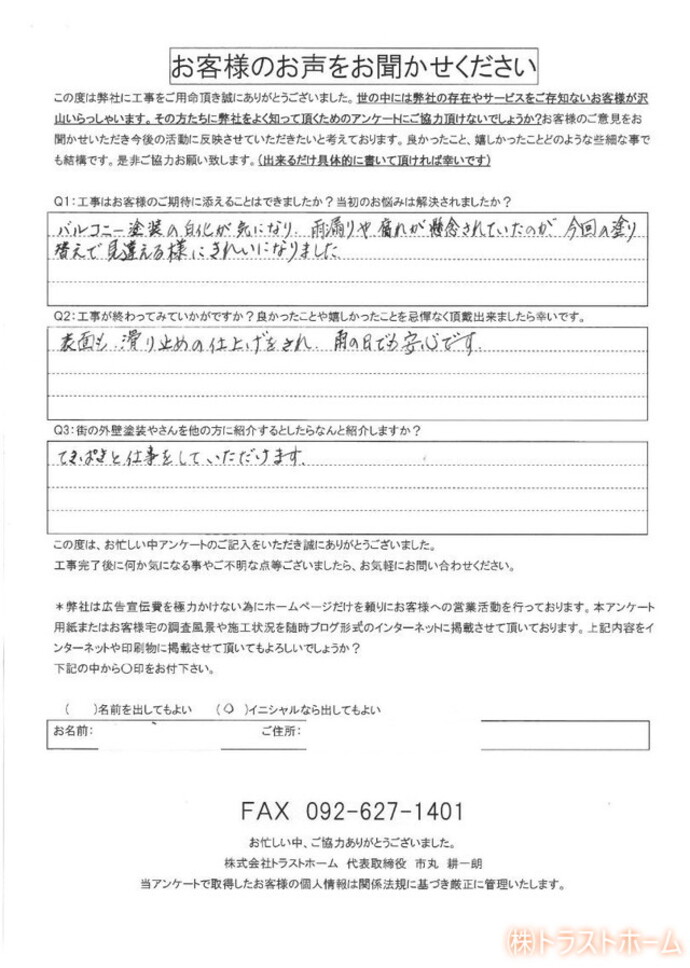 お客様のお声をお聞かせください
この度は弊社に工事をご用命頂き誠にありがとうございました。世の中には弊社の存在やサービスをご存知ないお客様が沢
山いらっしゃいます。その方たちに弊社をよく知って頂くためのアンケートにご協力頂けないでしょうか?お客様のご意見をお
聞かせいただき今後の活動に反映させていただきたいと考えております。良かったこと、嬉しかったことどのような些細な事で
も結構です。是非ご協力お願い致します。(出来るだけ具体的に書いて頂ければ幸いです)
Q1:工事はお客様のご期待に添えることはできましたか?当初のお悩みは解決されましたか?
バルコニー塗装の白化が気になり、雨漏りや腐れが懸念されていたのが今回の塗り
替えで見違える様にきれいになりました。
Q2:工事が終わってみていかがですか?良かったことや嬉しかったことを忌憚なく頂戴出来ましたら幸いです。
表面も、滑り止めの仕上げをされ、雨の日でも安心です。
Q3:街の外壁塗装やさんを他の方に紹介するとしたらなんと紹介しますか?
てきぱきと仕事をしていただけます。
この度は、お忙しい中アンケートのご記入をいただき誠にありがとうございました。
工事完了後に何か気になる事やご不明な点等ございましたら、お気軽にお問い合わせください。
*弊社は広告宣伝費を極力かけない為にホームページだけを頼りにお客様への営業活動を行っております。本アンケート
用紙またはお客様宅の調査風景や施工状況を随時ブログ形式のインターネットに掲載させて頂いております。上記内容をイ
ンターネットや印刷物に掲載させて頂いてもよろしいでしょうか?
下記の中から○印をお付下さい。
( )名前を出してもよい (○)イニシャルなら出してもよい
お名前: ご住所:
FAX 092-627-1401
お忙しい中、ご協力ありがとうございました。
株式会社トラストホーム 代表取締役 市丸 耕一朗
当アンケートで取得したお客様の個人情報は関係法規に基づき厳正に管理いたします。
(株)トラストホーム